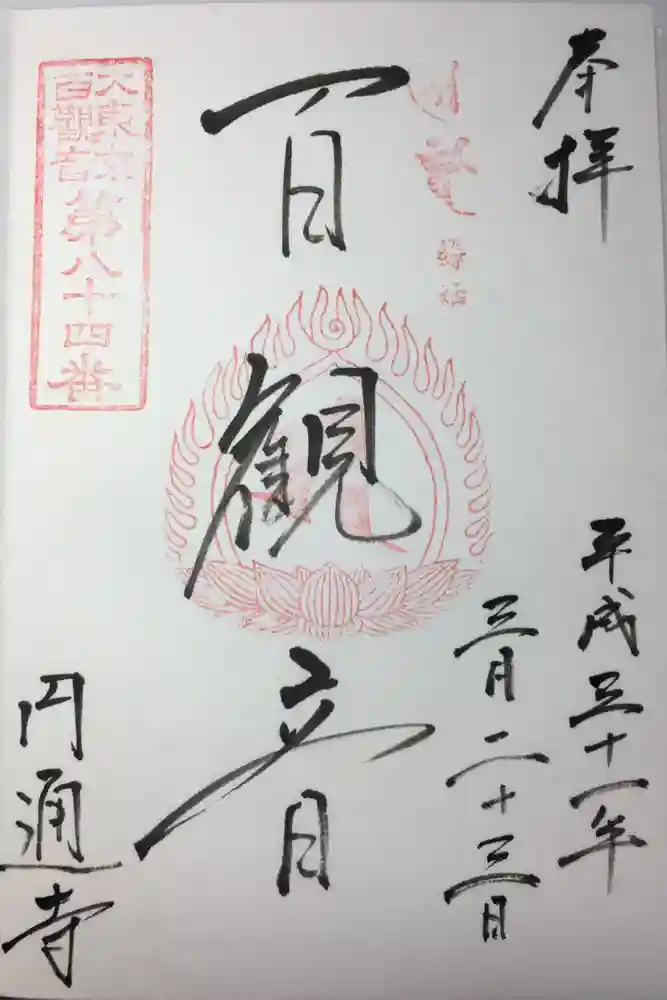 奉拝
平成三十一年
三月二十三日
百観音
大東京
百観音
第八十四番
円通寺